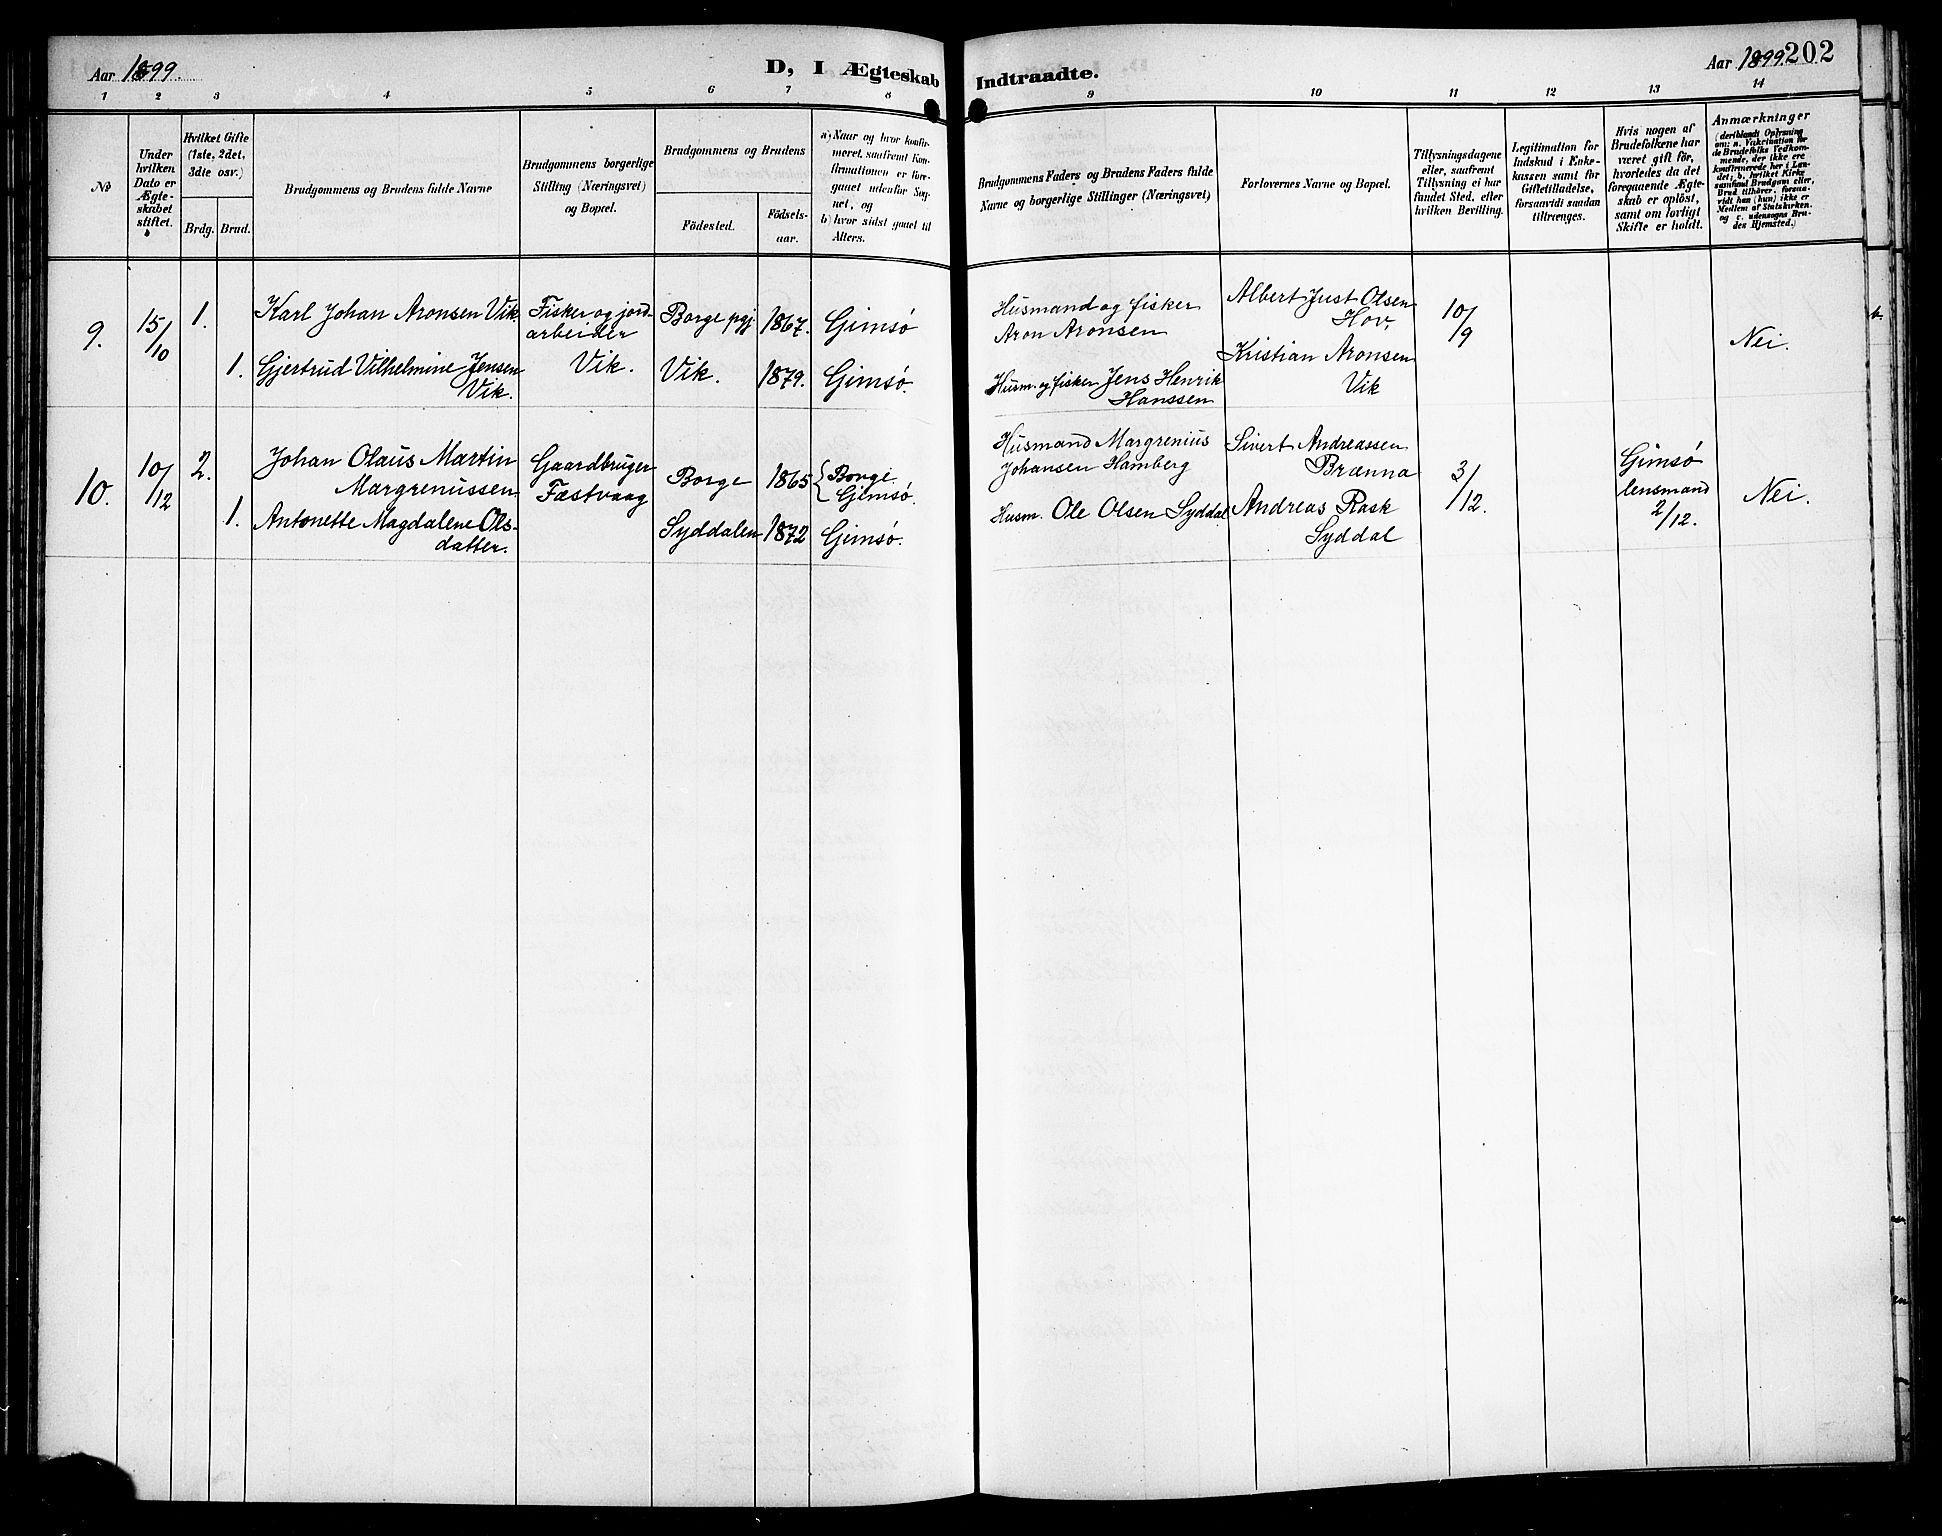 Aar 1899.
D, I Ægteskab Indtraadte.
Aar 1899.
202
1 2 3 4 5 6 7 8 9 10 11 12 13 14
No
Under hvilken Dato er Ægte-skabet stiftet.
Hvilket Gifte (1ste, 2det, 3dte osv.)
Brdg. Brud.
Brudgommens og Brudens fulde Navne
Brudgommens borgerlige
Stilling (Næringsvei)
og Bopæl.
Brudgommens og Brudens
Födested.
Födsels-
aar.
a) Naar og hvor konfir-
meret, saafremt Kon-
firmationen er fore-
gaaet udenfor Sog-
net, og
b) hvor sidst gaaet til
Alters.
Brudgommens Faders og Brudens Faders fulde
Navne og borgerlige Stillinger (Næringsvei)
Forlovernes Navne og Bopæl.
Tillysningsdagene
eller, saafremt
Tillysning ei har
fundet Sted, efter
hvilken Bevilling.
Legitimation for
Indskud i Enke-
kassen samt for
Giftetilladelse,
forsaavidt saadan
tiltrænges.
Hvis nogen af
Brudefolkene har
været gift för,
hvorledes da det
foregaaende Ægte-
skab er oplöst,
samt om lovligt
Skifte er holdt.
Anmærkninger
(deriblandt Oplysning
om: a. Vakcination for
de Brudefolks Vedkom-
mende, der ikke ere
konfirmerede her i Lan-
det; b. hvilket Kirke
samfund Brudgom eller,
Brud tilhörer, forsaa-
vidt han (hun) ikke er
Medlem af Statskirken.
og c. udensogns Bru-
des Hjemsted.)
9. 15/10 1. Karl Johan Aronsen Vik. Fisker og jord- Borge pgj. 1867. Gimsø Husmand og fisker Albert Just Olsen 10/9 Nei.
arbeider Aron Aronsen Hov,
1. Gjertrud Vilhelmine Jensen Vik. Vik. 1879. Gimsø. Husm. og fisker Jens Henrik Kristian Aronsen
Vik. Hanssen Vik
10. 10/12 2. Johan Olaus Martin Gaardbruger Borge 1865 { Borge. Husmand Margrenius Sivert Andreassen 3/12. Gimsø Nei.
Margrenussen Fæstvaag Gimsø. Johansen Hamberg Brænna lensmand
1. Antonette Magdalene Ols- Syddalen 1872 Gimsø. Husm. Ole Olsen Syddal Andreas Rask 2/12.
datter. Syddal